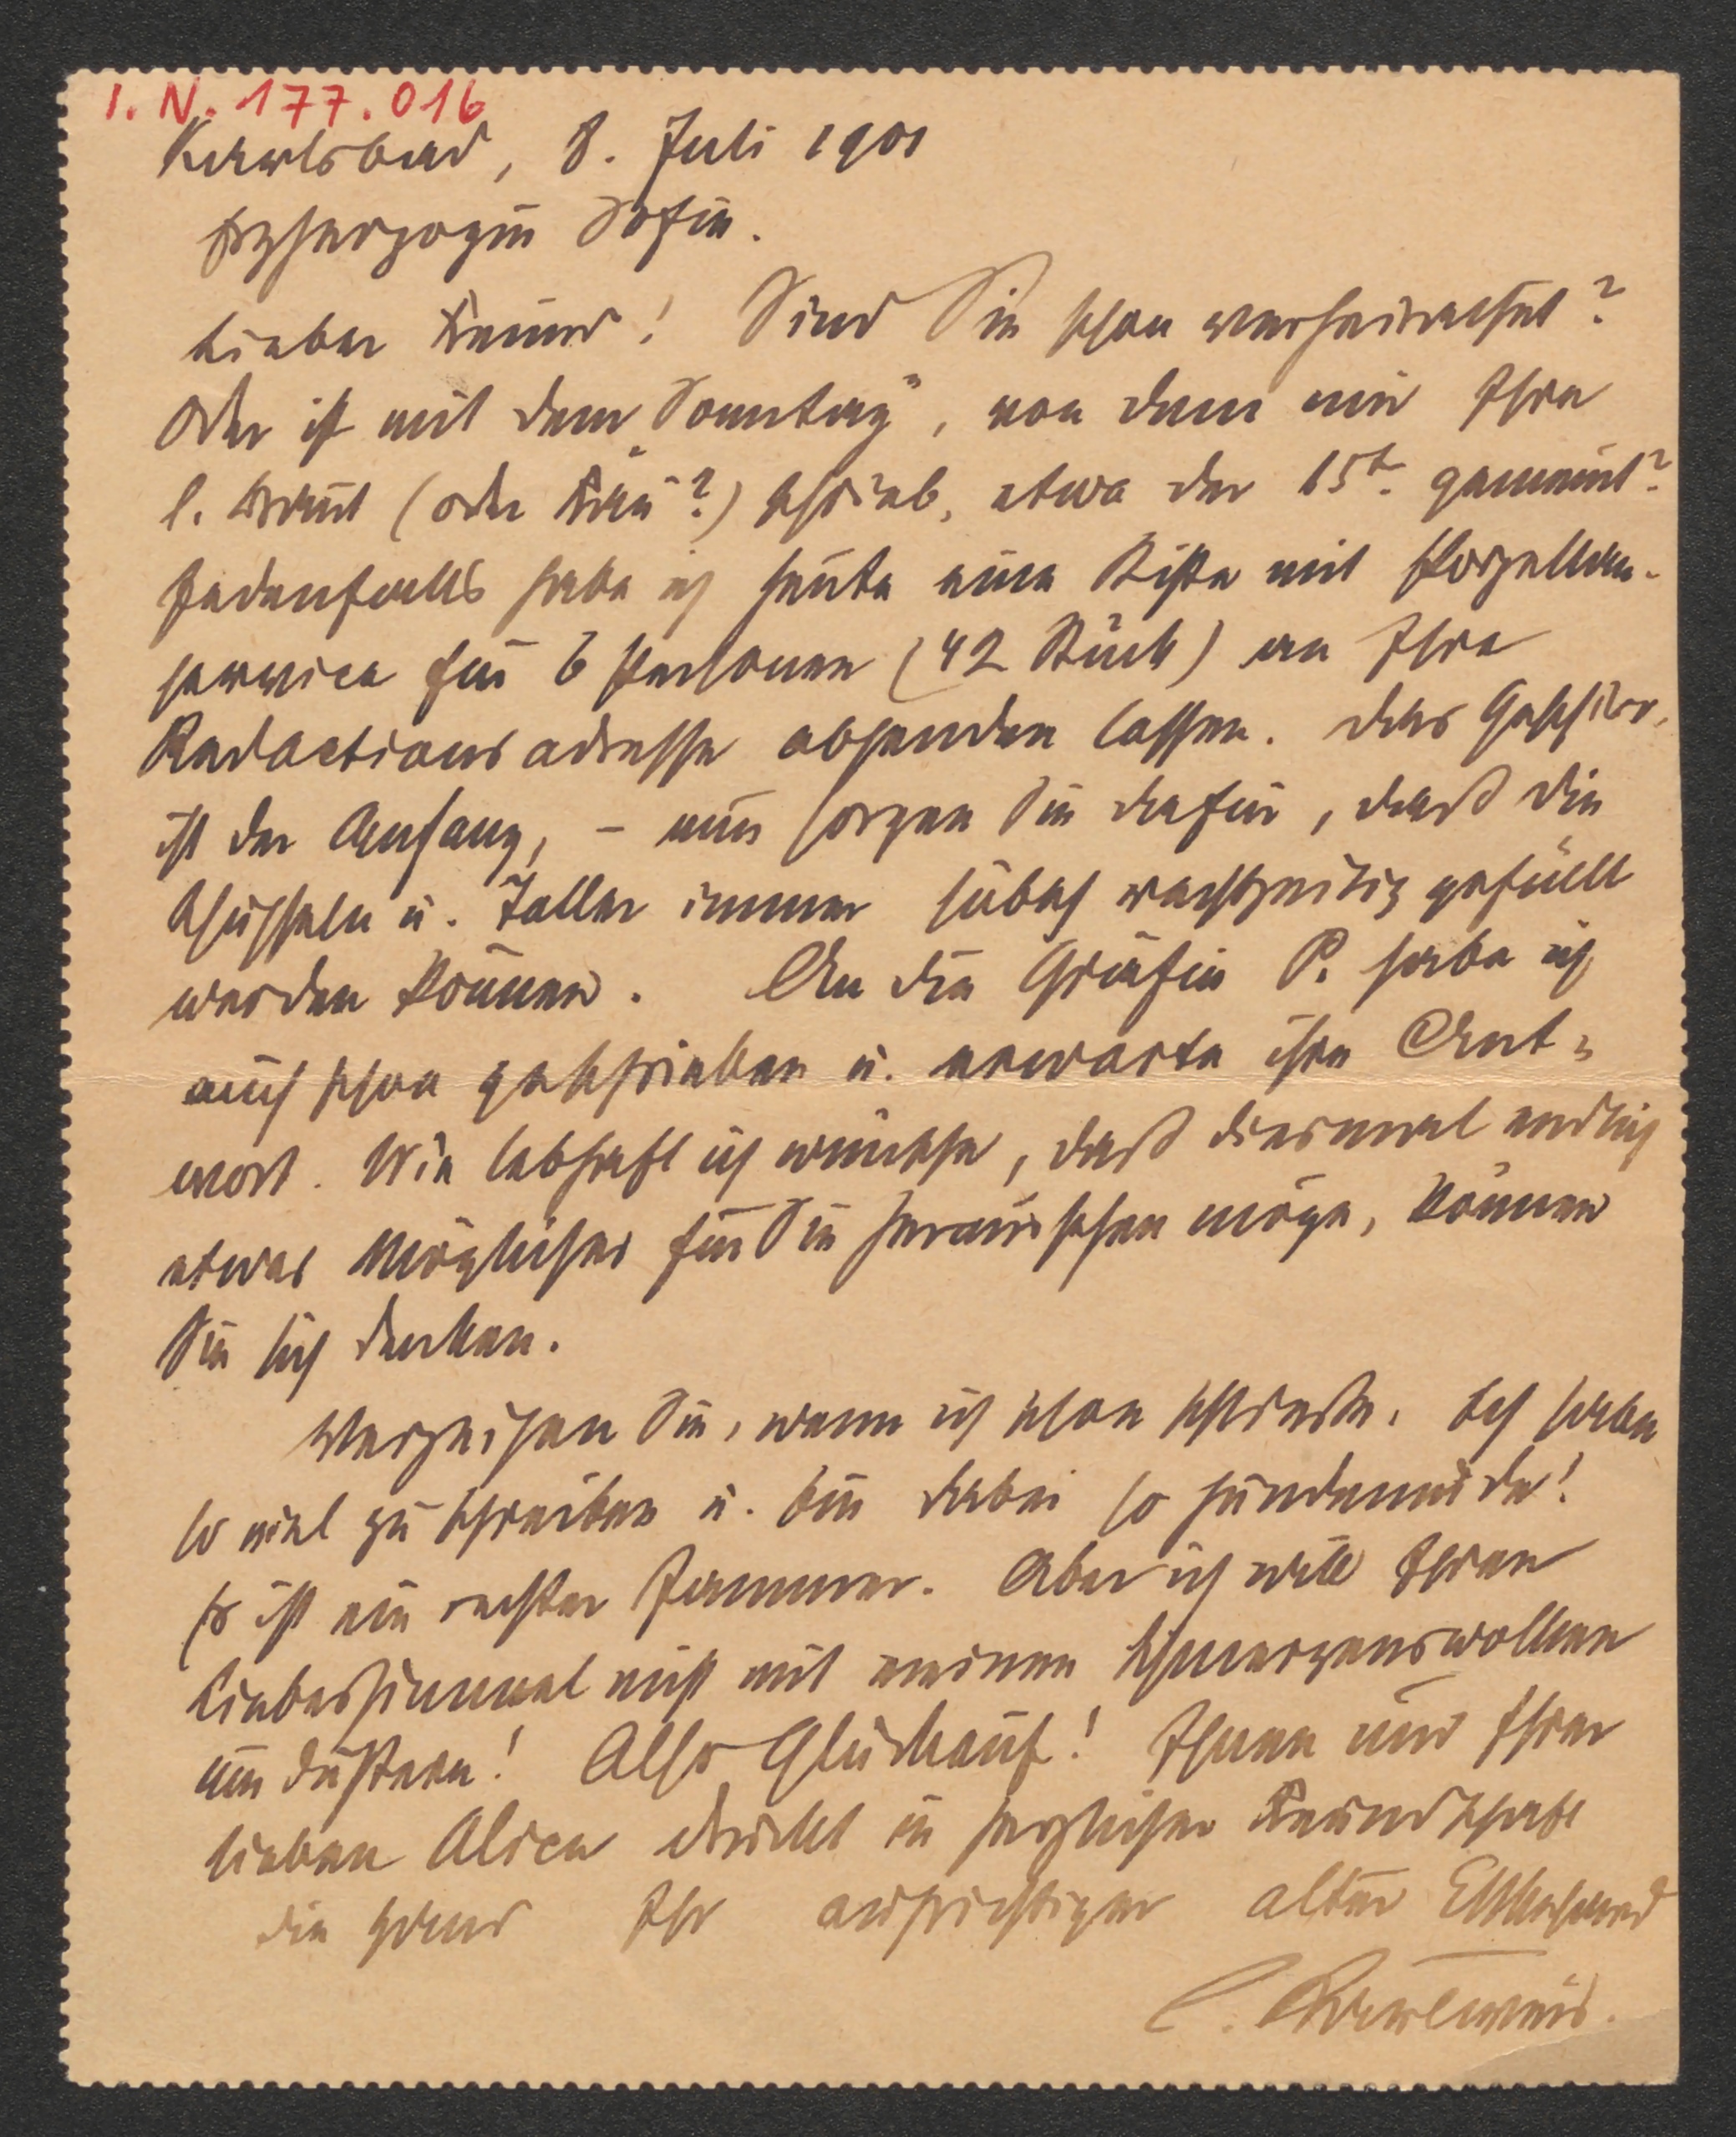 I. N. 177.016
Karlsbad, 8. Juli 1901
Erzherzogin Sofie.
Lieber Freund! Sind Sie schon verheirathet?
Oder ist mit dem „Sonntag“, von dem mir Ihre
l. Braut (oder Frau?) schrieb, etwa der 15t. gemeint?
Jedenfalls habe ich heute eine Kiste mit Porzellan-
service für 6 Personen (42 Stück) an Ihre
Redactionsadresse absenden lassen. Das Geschirr
ist der Anfang, – nun sorgen Sie dafür, daß die
Schüsseln u. Teller immer hübsch rechtzeitig gefüllt
werden können. An die Gräfin P. habe ich
auch schon geschrieben u. erwarte ihre Ant-
wort. Wie lebhaft ich wünsche, daß diesmal endlich
etwas Mögliches für Sie herausschauen möge, können
Sie sich denken.
Verzeihen Sie, wenn ich schon schließe. Ich habe
so viel zu schreiben u. bin dabei so hundemüde!
Es ist ein rechter Jammer. Aber ich will Ihren
Liebeshimmel nicht mit meinen Schmerzenswolken
umdüstern! Also Glückauf! Ihnen und Ihrer
lieben Alice drückt in herzlicher Freundschaft
die Hand Ihr aufrichtiger alter
C. Karlweis.